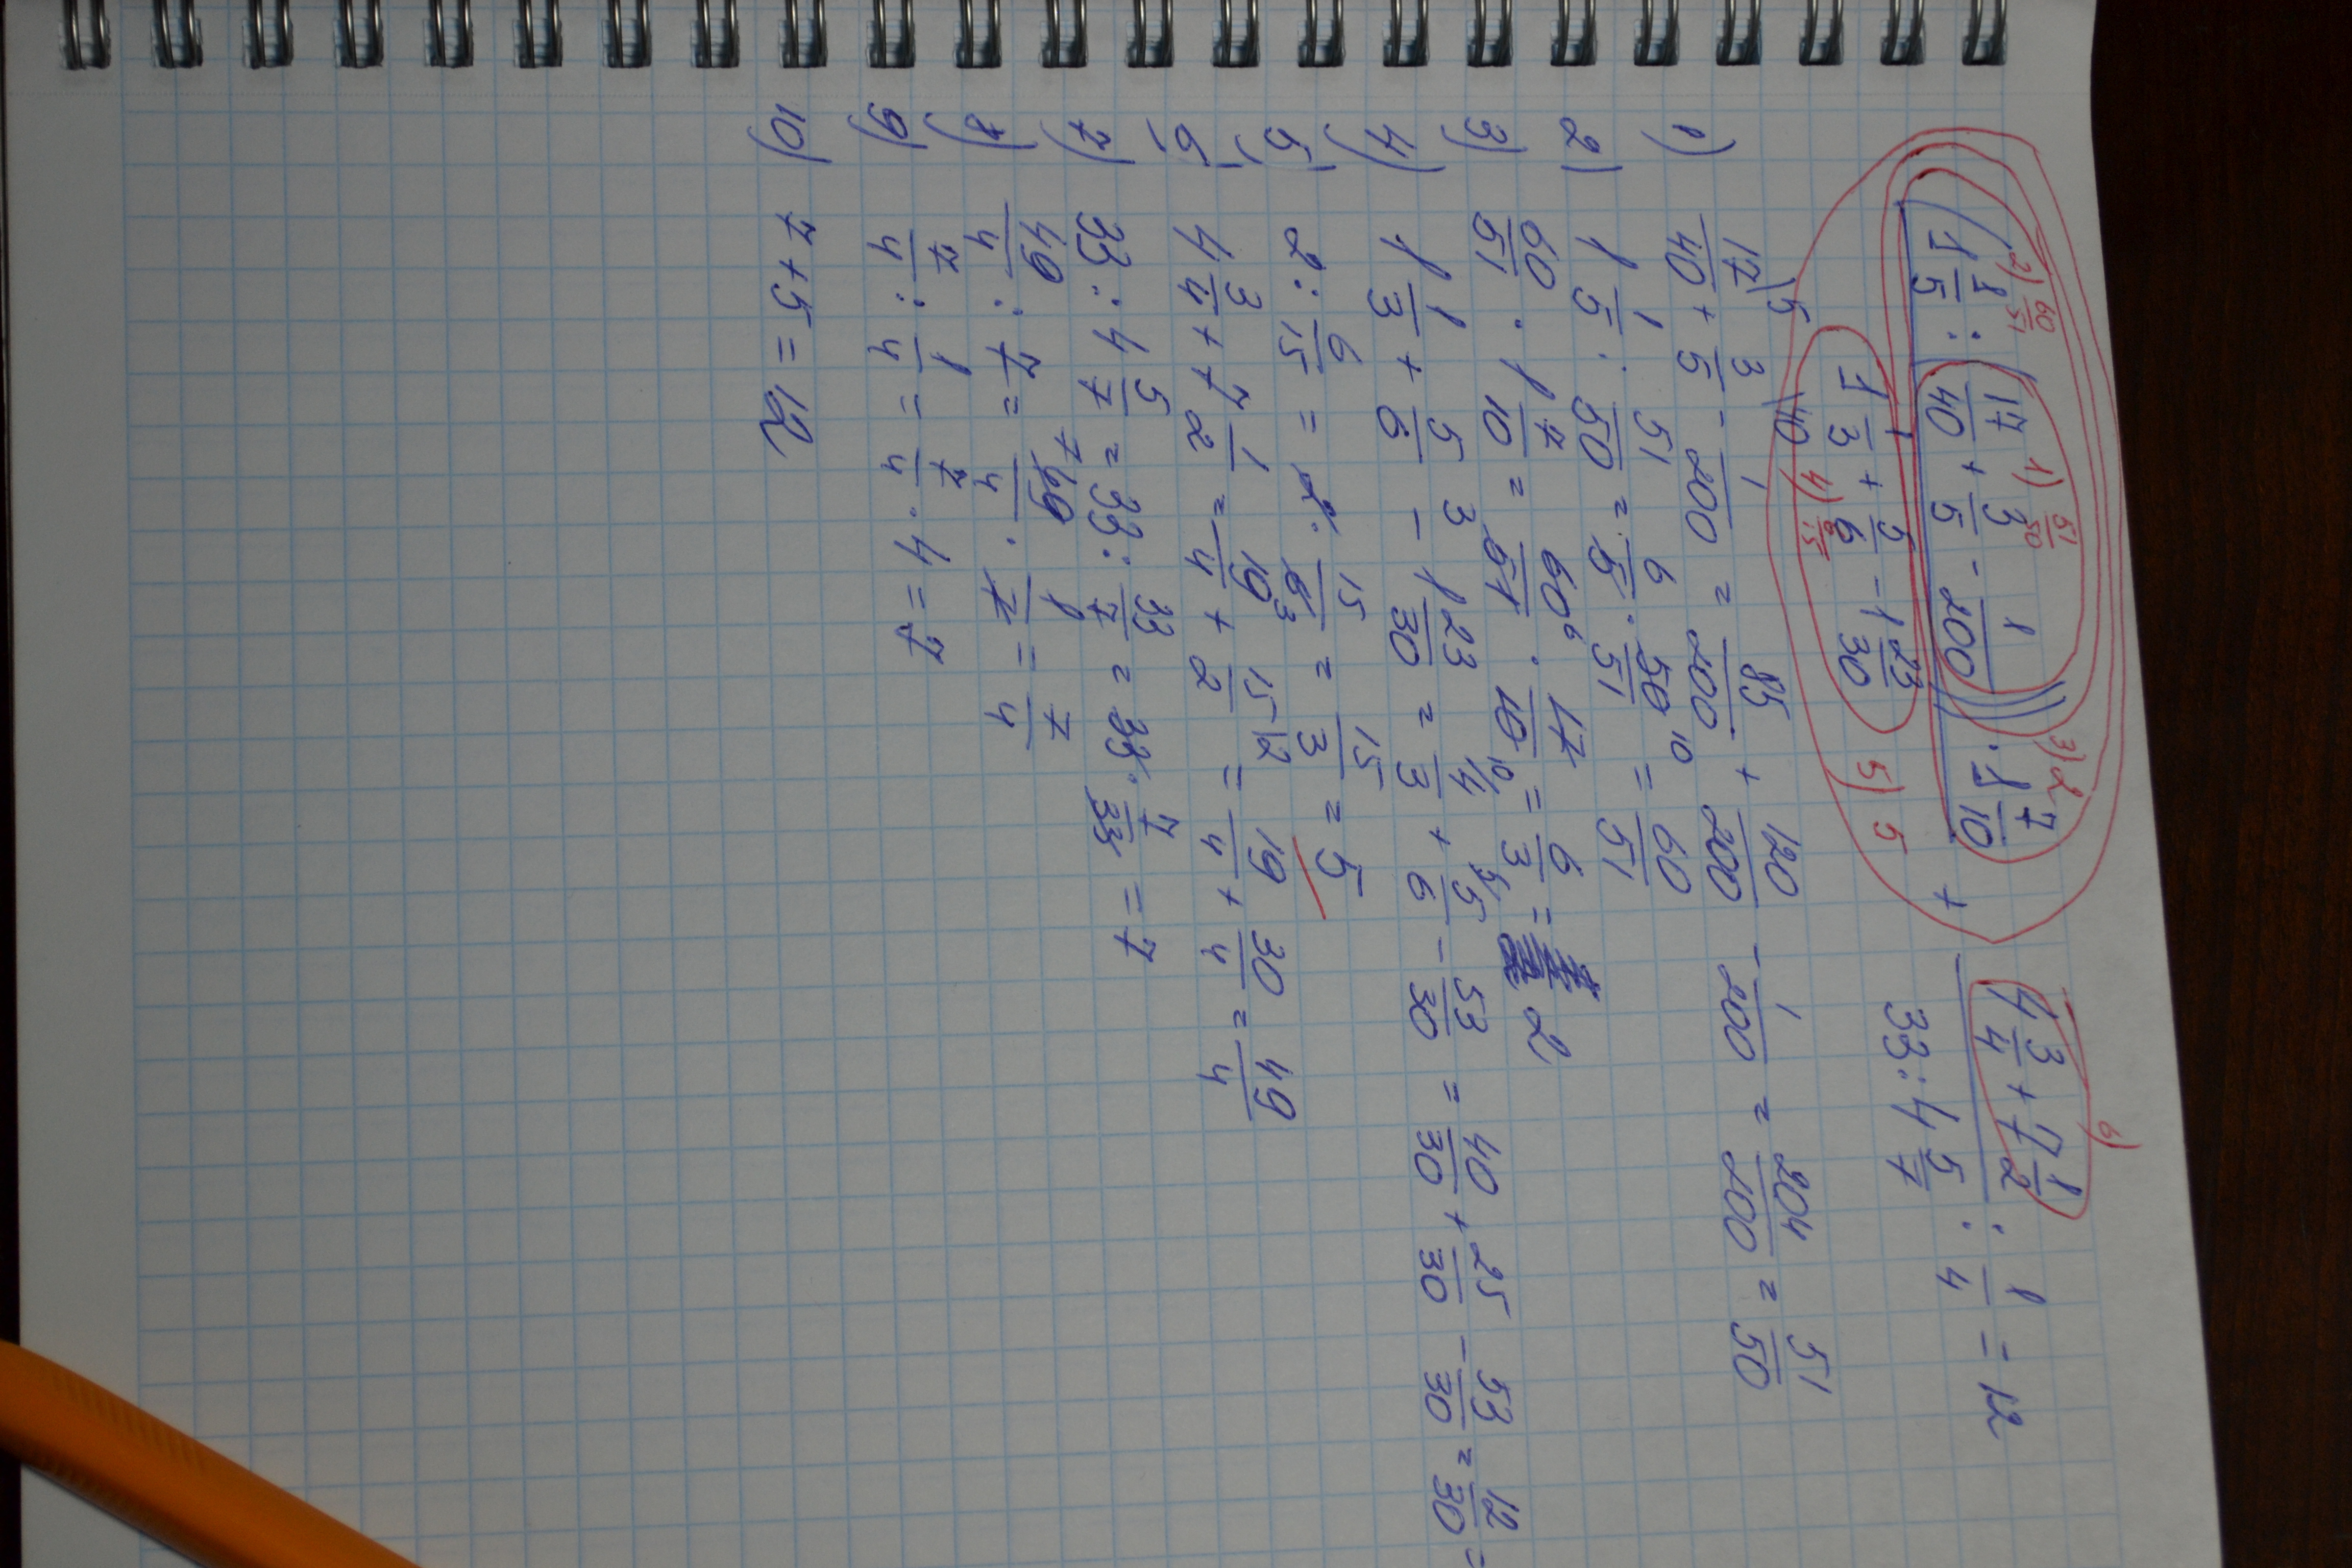 2) 60/51 1) 51/50 3) 2 6)
(1 1/5 : (17/40 + 3/5 - 1/200)) · 1 7/10 + 4 3/4 + 7 1/2 : 1/4 = 12
1 1/3 + 5/6 - 1 23/30 33 : 4 5/7
4) 6/15 5) 5
1) 17/40 + 3/5 - 1/200 = 85/200 + 120/200 - 1/200 = 204/200 = 51/50
2) 1 1/5 : 51/50 = 6/5 · 50/51 = 60/51
3) 60/51 · 1 7/10 = 60/51 · 17/10 = 6/3 = 2
4) 1 1/3 + 5/6 - 1 23/30 = 4/3 + 5/6 - 53/30 = 40/30 + 25/30 - 53/30 = 12/30 =
5) 2 : 6/15 = 2 · 15/6 = 15/3 = 5
6) 4 3/4 + 7 1/2 = 19/4 + 15/2 = 19/4 + 30/4 = 49/4
7) 33 : 4 5/7 = 33 : 33/7 = 33 · 7/33 = 7
8) 49/4 : 7 = 49/4 · 1/7 = 7/4
9) 7/4 : 1/4 = 7/4 · 4 = 7
10) 7 + 5 = 12